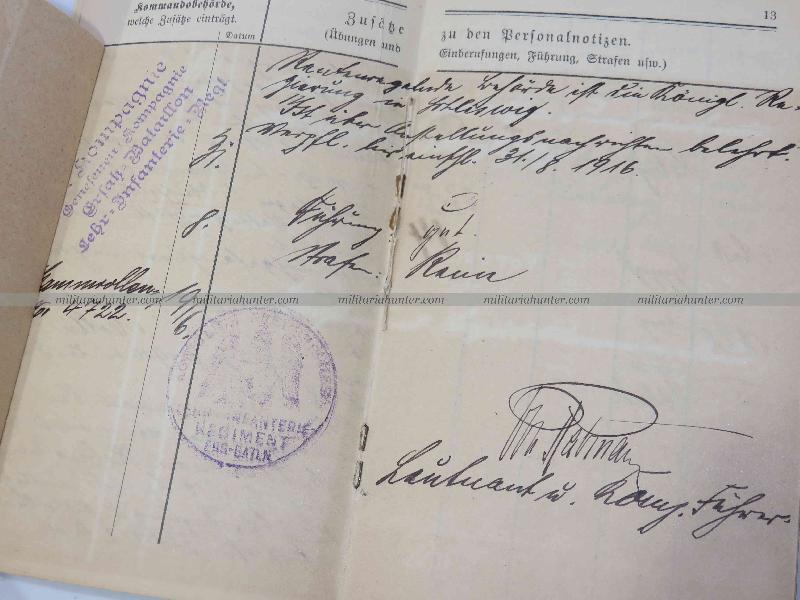 Kommandobehörde,
welche Zusätze einträgt.
Datum
Zusätze
(Übungen und
13
zu den Personalnotizen.
Einberufungen, Führung, Strafen usw.)
Kompagnie
Genesenen Kompagnie
Ersatz Bataillon
Lehr-Infanterie-Regt
Rentenregelnde Behörde ist die Königl. Re-
gierung in Schleswig.
Ist über Anstellungsnachrichten belehrt.
Verpfl. bis einschl. 31./8. 1916.
31.
8.
Führung gut.
Strafen: Keine
Stammrollen
Nr 4722.
19
16.
LEHR-INFANTERIE-
REGIMENT
ERS-BATLN
Leutnant u. Komp. Führer.
militariahunter.com militariahunter.com militariahunter.com militariahunter.com militariahunter.com